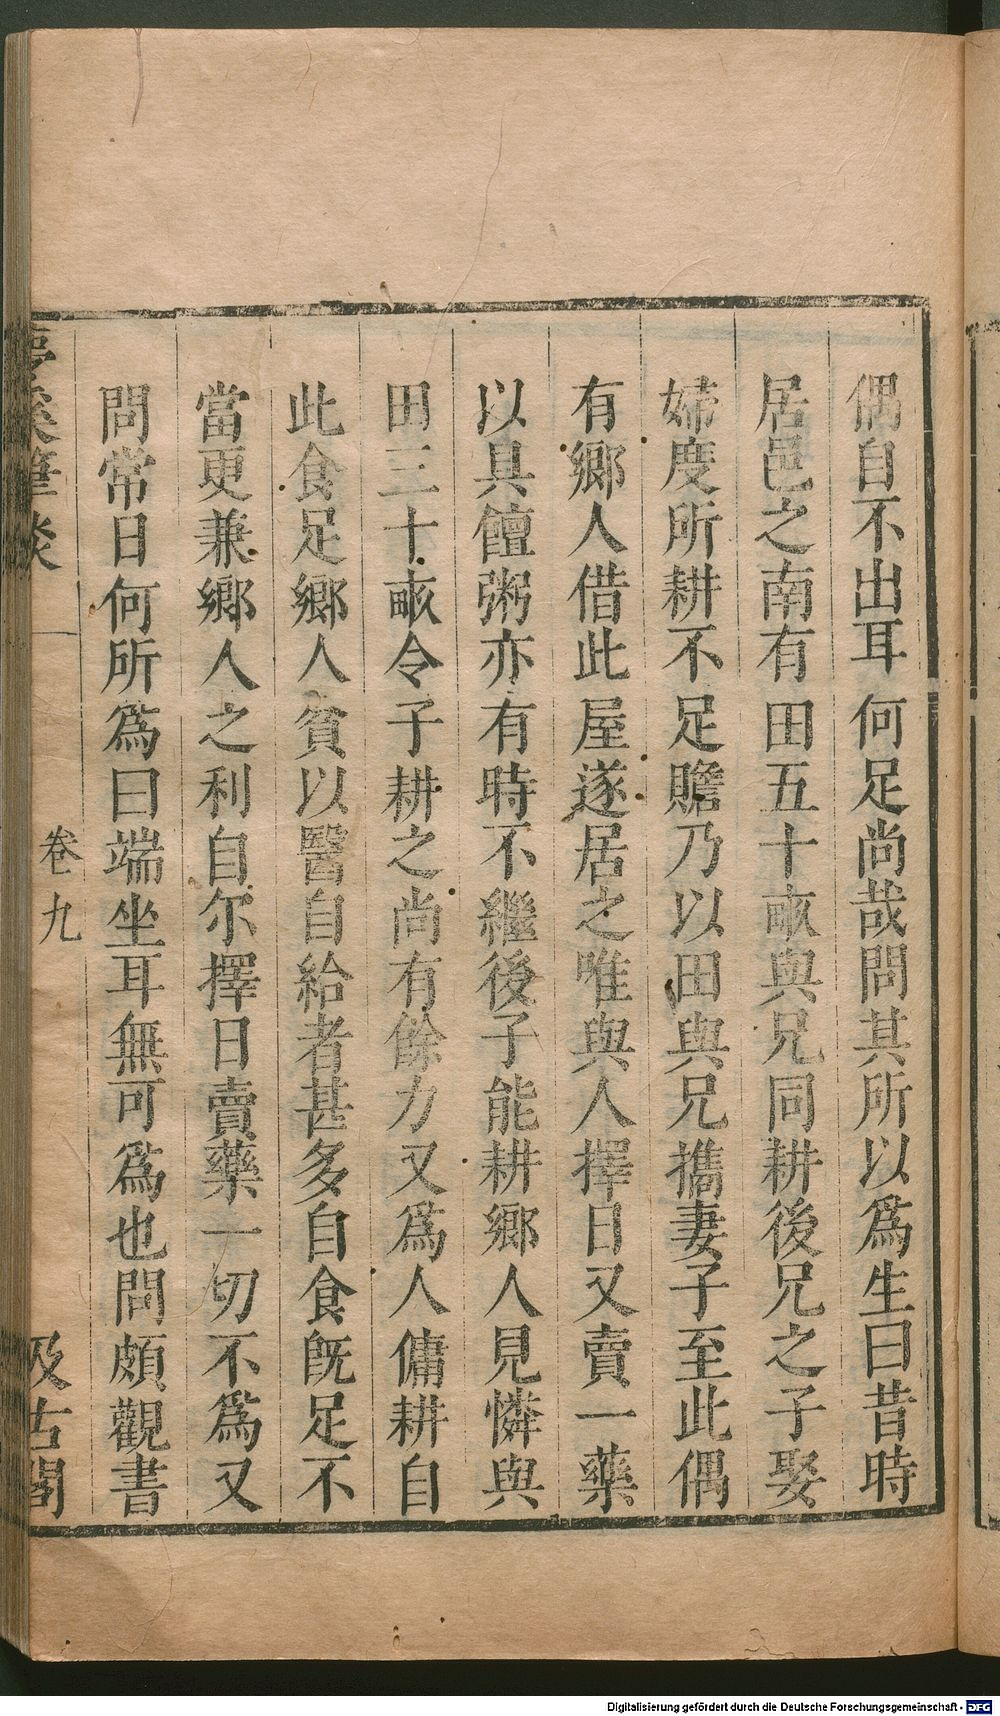 偶自不出耳何足尚哉問其所以為生曰昔時
居邑之南有田五十畝與兄同耕後兄之子娶
婦度所耕不足贍乃以田與兄攜妻子至此偶
有鄉人借此屋遂居之唯與人擇日又賣一藥
以具饘粥亦有時不繼後子能耕鄉人見憐與
田三十畝令子耕之尚有餘力又為人傭耕自
此食足鄉人貧以醫自給者甚多自食既足不
當更兼鄉人之利自尔擇日賣藥一切不為又
問常日何所為曰端坐耳無可為也問頗觀書
夢溪筆談 卷九 汲古閣
Digitalisierung gefördert durch die Deutsche Forschungsgemeinschaft - DFG